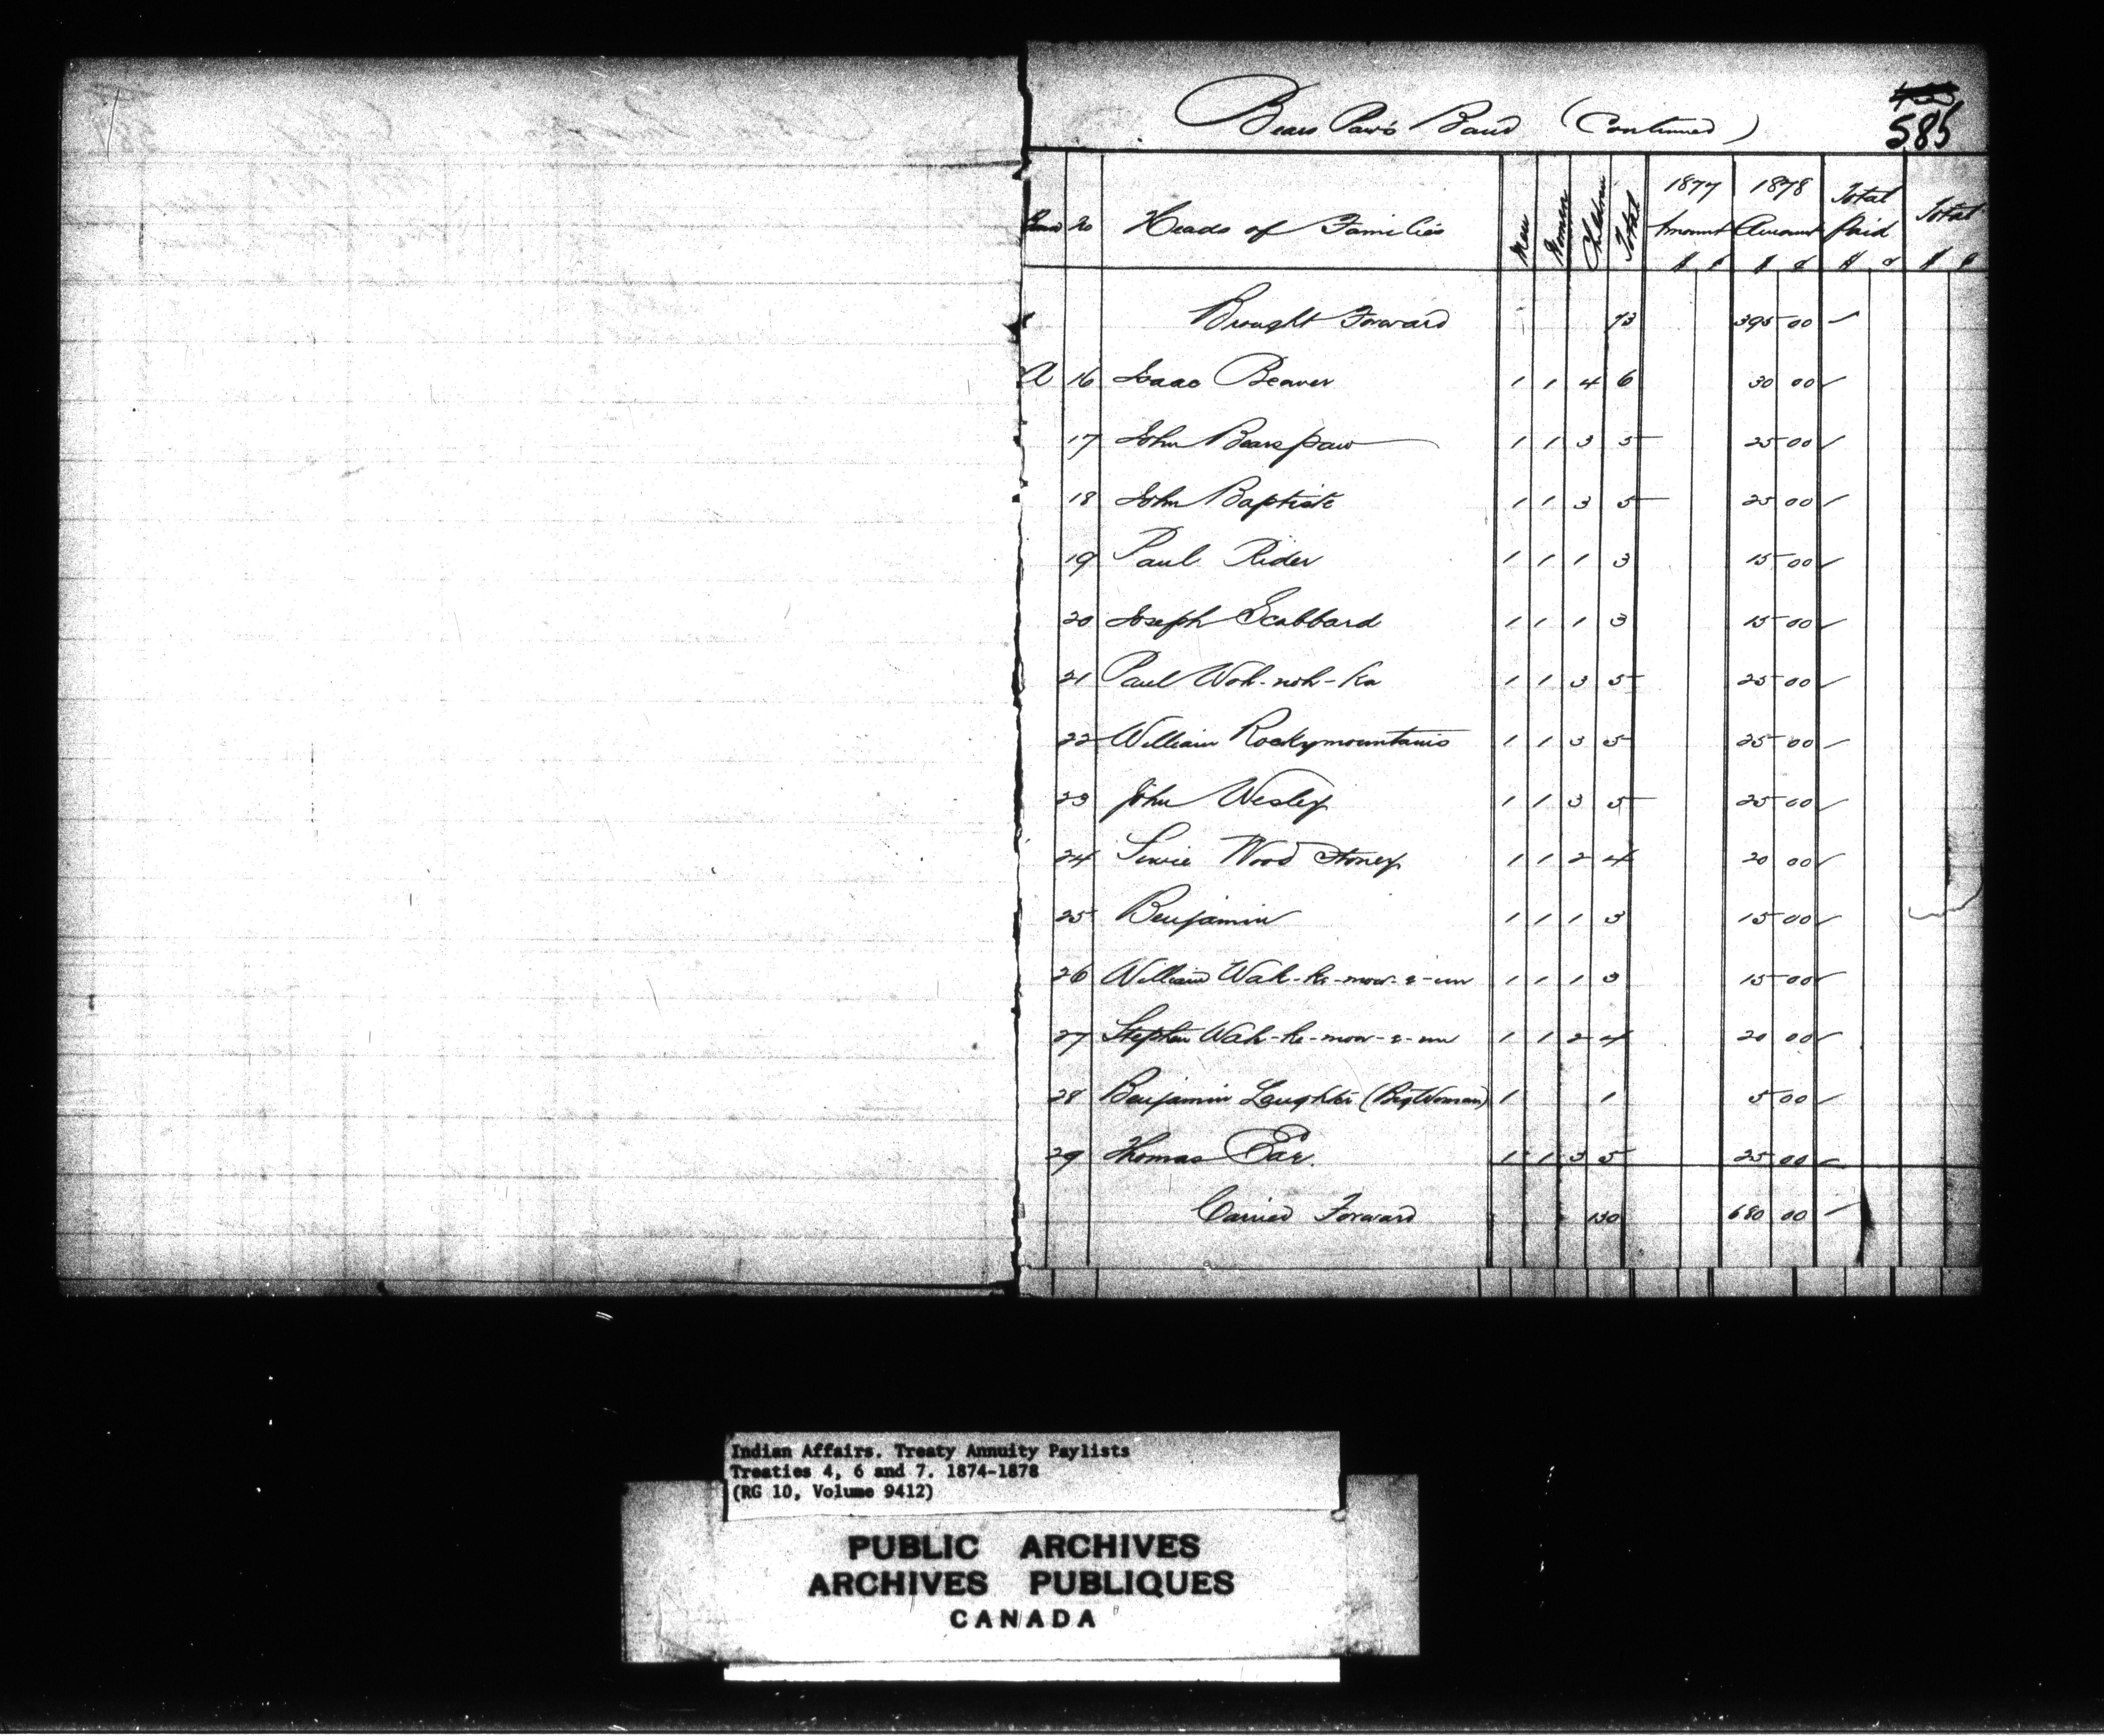 Bears Paw's Band (Continued)
585
Band No Heads of Families Men Women Children Total 1877 Amount $ ¢ 1878 Amount $ ¢ Total Paid $ ¢ Total $ ¢
Brought Forward 73 395 00
A 16 Isaac Beaver 1 1 4 6 30 00
17 John Bearspaw 1 1 3 5 25 00
18 John Baptiste 1 1 3 5 25 00
19 Paul Rider 1 1 1 3 15 00
20 Joseph Scabbard 1 1 1 3 15 00
21 Paul Woh-noh-Ka 1 1 3 5 25 00
22 William Rockymountains 1 1 3 5 25 00
23 John Wesley 1 1 3 5 25 00
24 Wood Stoney 1 1 2 4 20 00
25 Benjamin 1 1 1 3 15 00
26 William 1 1 1 3 15 00
27 Stephen 1 1 2 4 20 00
28 Benjamin (Big Woman) 1 1 5 00
29 Thomas Ear. 1 1 3 5 25 00
Carried Forward 130 680 00
Indian Affairs. Treaty Annuity Paylists
Treaties 4, 6 and 7. 1874-1878
(RG 10, Volume 9412)
PUBLIC ARCHIVES
ARCHIVES PUBLIQUES
CANADA